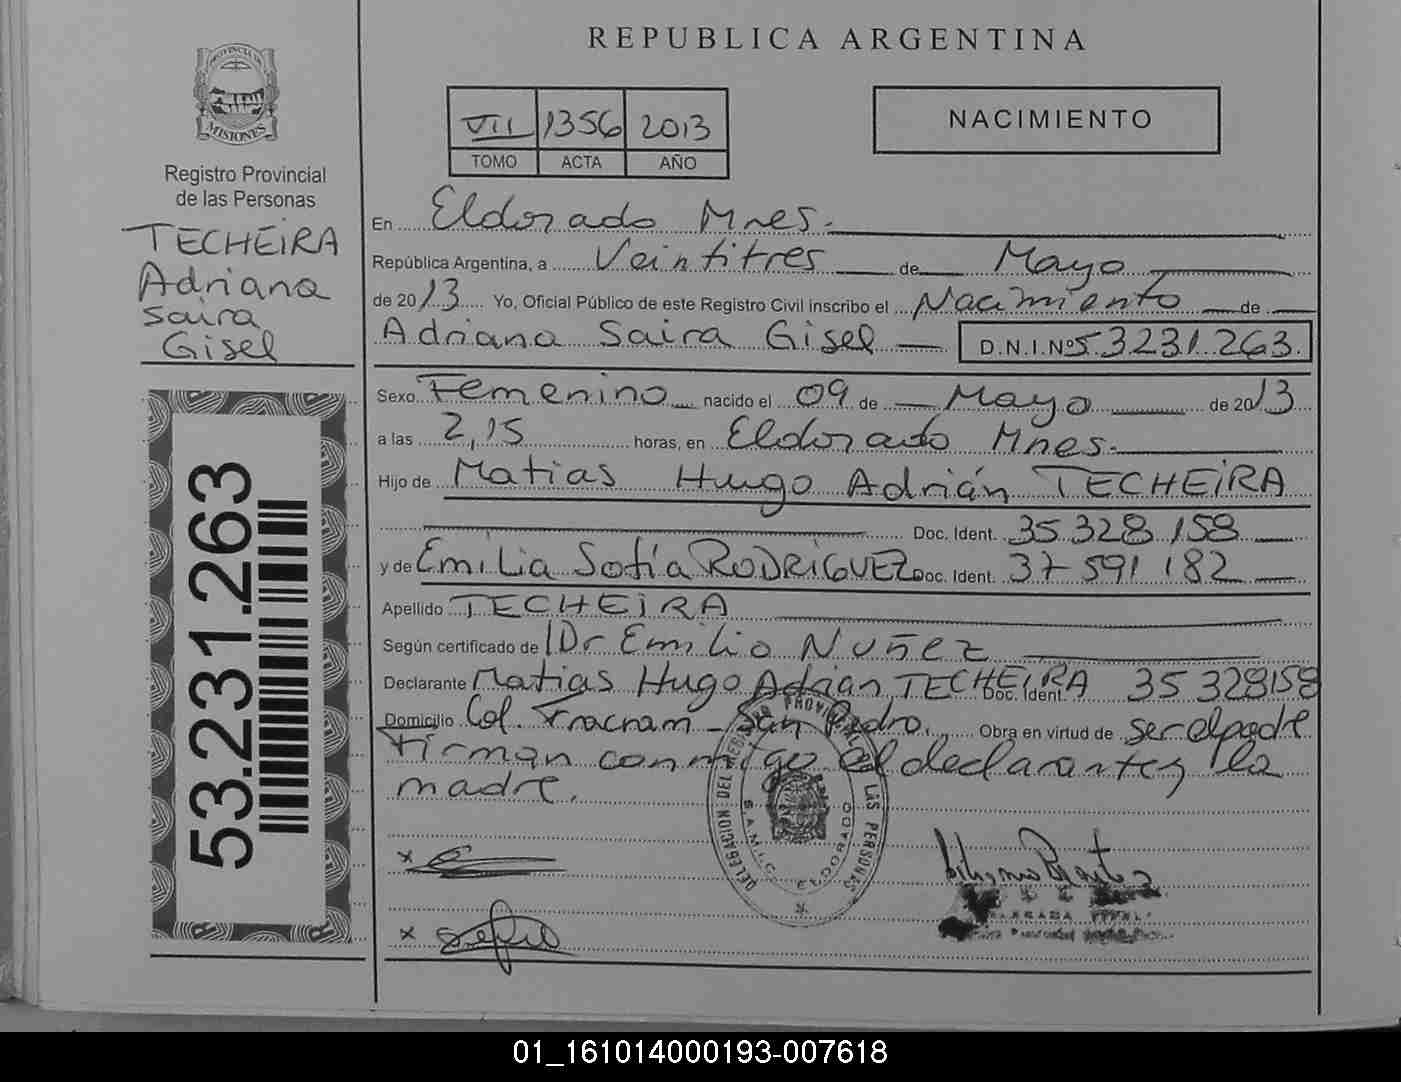 REPUBLICA ARGENTINA
PROVINCIA DE
MISIONES
Registro Provincial
de las Personas
TECHEIRA
Adriana
Saira
Gisel
53.231.263
VII 1356 2013
TOMO ACTA AÑO
NACIMIENTO
En Eldorado Mnes.
República Argentina, a Veintitres de Mayo
de 2013 Yo, Oficial Público de este Registro Civil inscribo el Nacimiento de
Adriana Saira Gisel D.N.I.Nº 53231263
Sexo Femenino nacido el 09 de Mayo de 2013
a las 2,15 horas, en Eldorado Mnes.
Hijo de Matias Hugo Adrián TECHEIRA
Doc. Ident. 35 328 158
y de Emilia Sofía RODRIGUEZ Doc. Ident. 37 591 182
Apellido TECHEIRA
Según certificado de Dr Emilio Nuñez
Declarante Matias Hugo Adrian TECHEIRA Doc. Ident. 35 328158
Domicilio Col. Tracram - San Pedro. Obra en virtud de ser el padre
Firman conmigo el declarante y la
madre.
DELEGACION DEL REGISTRO PROVINCIAL DE LAS PERSONAS
S.A.M.I.C. ELDORADO
x
x
01_161014000193-007618